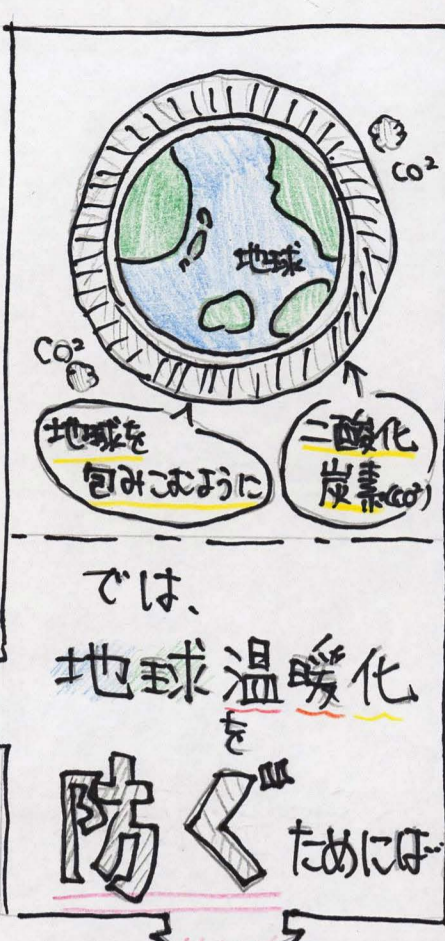 CO²
地球
CO²
地球を
包みこむように
二酸化
炭素(CO²)
では、
地球温暖化
を
防ぐ
ためには…